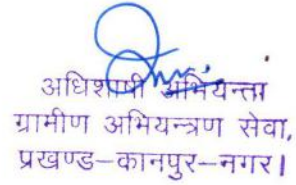 अधिशाषी अभियन्ता
ग्रामीण अभियन्त्रण सेवा,
प्रखण्ड–कानपुर–नगर।